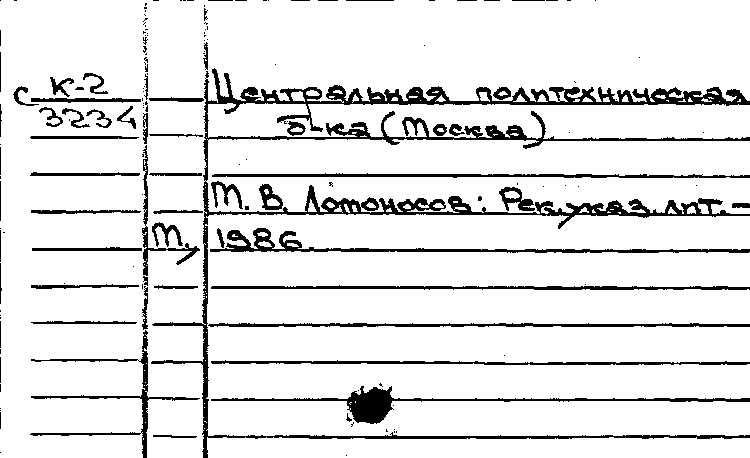 К-2 Центральная политехническая
с 3234 б-ка (Москва)
М. В. Ломоносов: Рек. указ. лит. –
М., 1986.